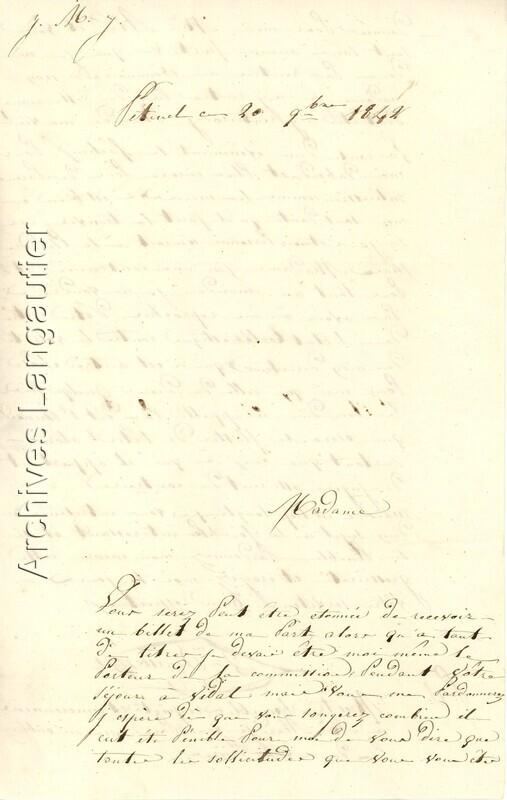 j. M. j.
ce 20 9bre 1842
Archives Langautier
Madame
Vous serez Peut être étonnée de recevoir
un billet de ma Part alors qu'a tant
De titres je devais être moi même le
Porteur De la commission, Pendant Vôtre
séjour à Vidal mais Vous me Pardonnerez
j'espère dès que vous songerez combien il
eut été Pénible Pour moi de vous dire que
toutes les sollicitudes que vous vous êtes